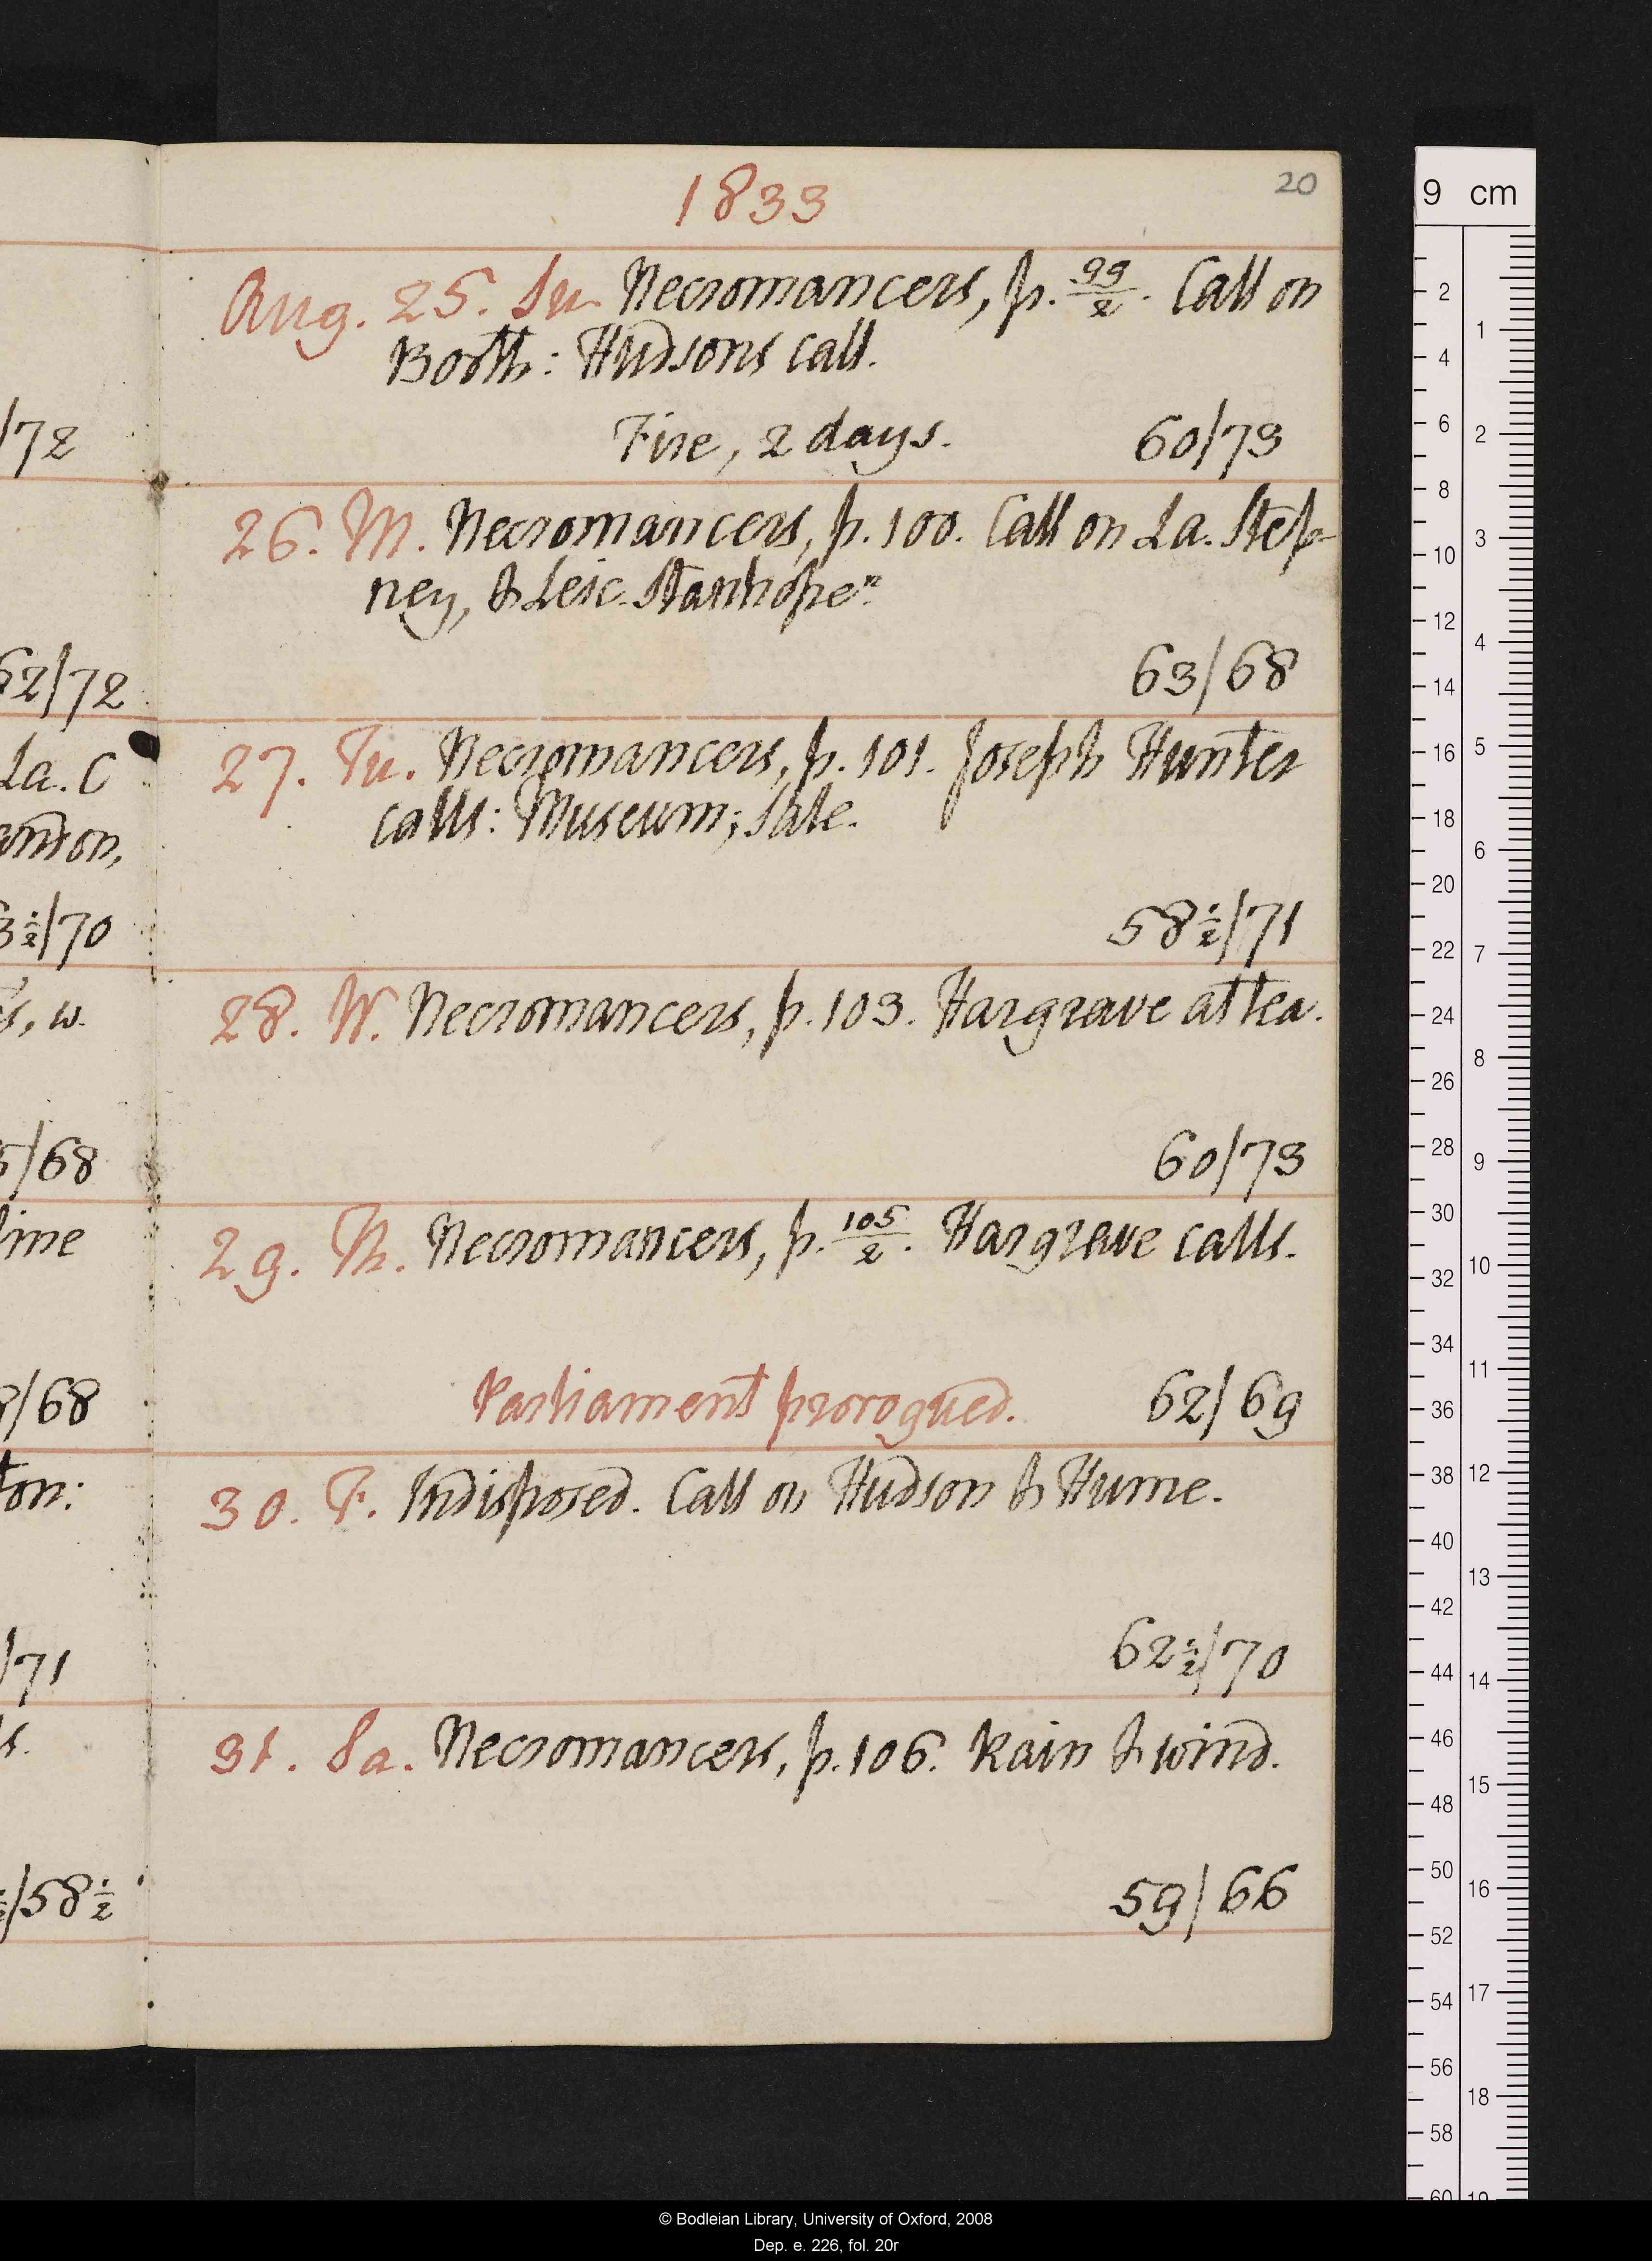 1833
20
Aug. 25. Su. Necromancers, p. 99/2. Call on
Booth: Hudsons call.
Fire, 2 days. 60/73
26. M. Necromancers, p. 100. Call on La. Step-
ney, & Leic. Stanhope n.
63/68
27. Tu. Necromancers, p. 101. Joseph Hunter
calls: Museum; Sale.
58½/71
28. W. Necromancers, p. 103. Hargrave at tea.
60/73
29. Th. Necromancers, p. 105/2. Hargrave calls.
Parliament prorogued. 62/69
30. F. Indisposed. Call on Hudson & Hume.
62½/70
31. Sa. Necromancers, p. 106. Rain & wind.
59/66
/72
62/72
La. C
3½/70
s, w.
5/68
/68
ton:
/71
/58½
9 cm
2
4
6
8
10
12
14
16
18
20
22
24
26
28
30
32
34
36
38
40
42
44
46
48
50
52
54
56
58
60
1
2
3
4
5
6
7
8
9
10
11
12
13
14
15
16
17
18
19
© Bodleian Library, University of Oxford, 2008
Dep. e. 226, fol. 20r